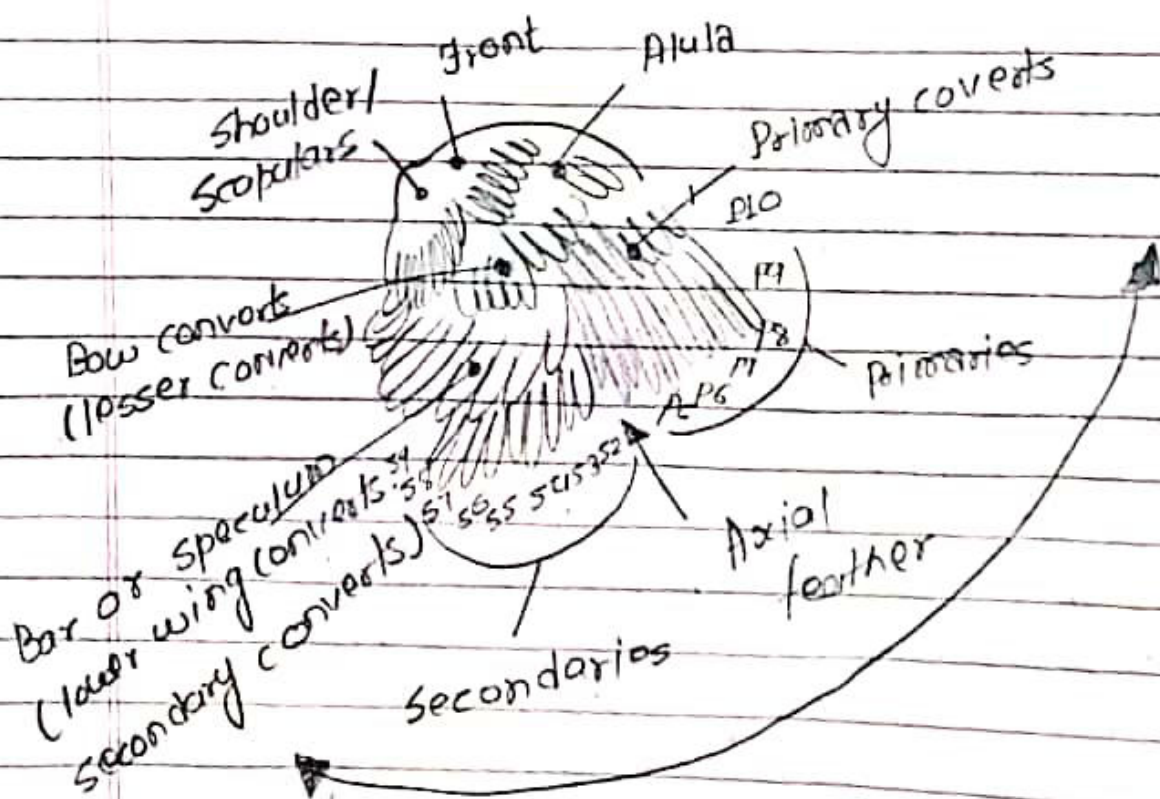 Front
Alula
Shoulder/
Scapulars
Primary coverts
P10
P9
8
P7
P6
Primaries
Bow converts
(lesser converts)
Bar or speculum
(lower wing converts
secondary converts)
S9
S8
S7
S6
S5
S4
S3
S2
Axial
feather
Secondaries